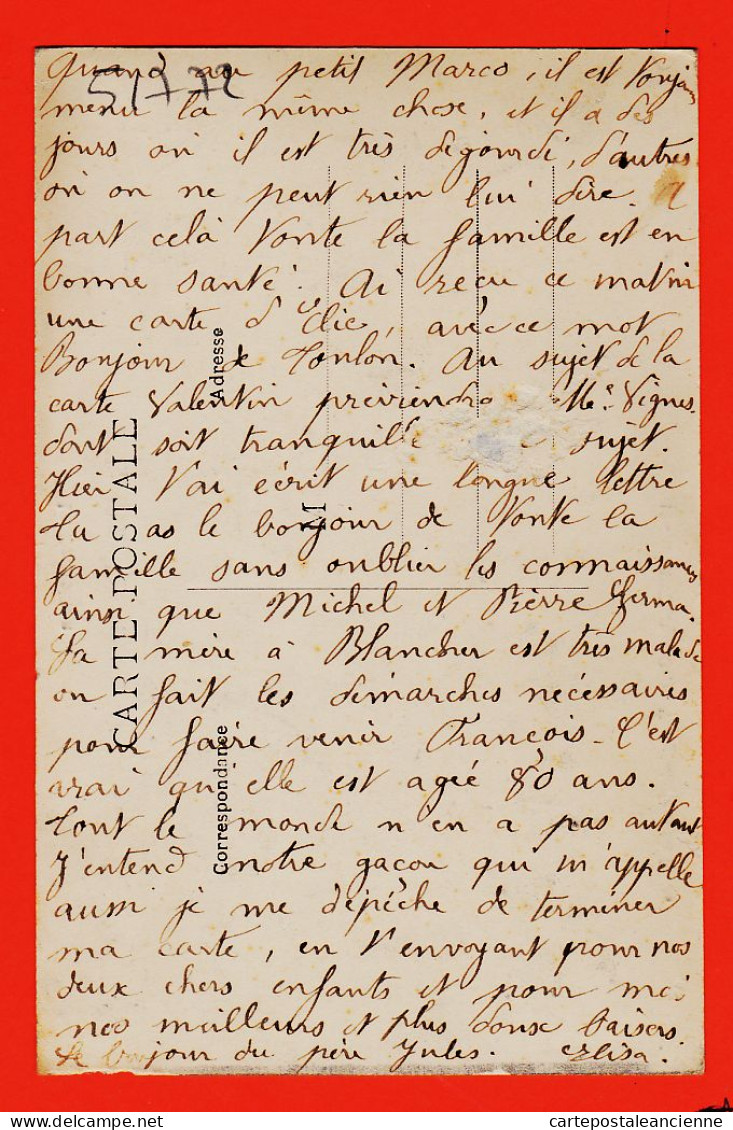 Quand au petit Marco, il est toujours
menu la même chose, et il a des
jours où il est très dégourdi, d'autres
où on ne peut rien lui dire. A
part celà toute la famille est en
bonne santé. Ai reçu ce matin
une carte d'Elie, avec ce mot
Bonjour de Toulon. Au sujet de la
carte Valentin préviendra Me Vignes
dont soit tranquille sujet.
Hier t'ai écrit une longue lettre
tu as le bonjour de toute la
famille sans oublier les connaissances
ainsi que Michel et Pierre Ferma.
La mère à Blancher est très malade
on fait les démarches nécessaires
pour faire venir François. C'est
vrai qu'elle est agée 80 ans.
tout le monde n en a pas autant
J'entend notre gaçou qui m'appelle
aussi je me dépêche de terminer
ma carte, en t'envoyant pour nos
deux chers enfants et pour moi
nos meilleurs et plus doux baisers.
Le bonjour du père Jules. Elisa.
5/7 72
CARTE POSTALE
Correspondance
Adresse
M
delcampe.net
cartepostaleancienne